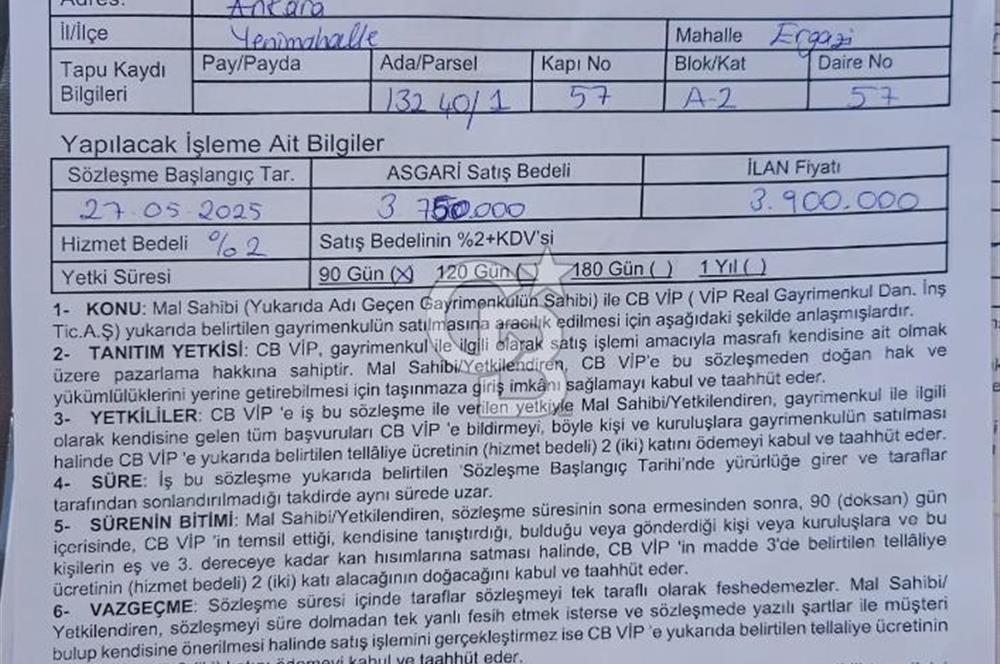 Adres: Ankara
İl/İlçe Yenimahalle Mahalle Ergazi
Tapu Kaydı Bilgileri Pay/Payda Ada/Parsel Kapı No Blok/Kat Daire No
13240/1 57 A-2 57
Yapılacak İşleme Ait Bilgiler
Sözleşme Başlangıç Tar. ASGARİ Satış Bedeli İLAN Fiyatı
27.05.2025 3 750.000 3.900.000
Hizmet Bedeli %2 Satış Bedelinin %2+KDV'si
Yetki Süresi 90 Gün (X) 120 Gün ( ) 180 Gün ( ) 1 Yıl ( )
1- KONU: Mal Sahibi (Yukarıda Adı Geçen Gayrimenkulün Sahibi) ile CB VİP ( VİP Real Gayrimenkul Dan. İnş
Tic.A.Ş) yukarıda belirtilen gayrimenkulün satılmasına aracılık edilmesi için aşağıdaki şekilde anlaşmışlardır.
2- TANITIM YETKİSİ: CB VİP, gayrimenkul ile ilgili olarak satış işlemi amacıyla masrafı kendisine ait olmak
üzere pazarlama hakkına sahiptir. Mal Sahibi/Yetkilendiren, CB VİP'e bu sözleşmeden doğan hak ve
yükümlülüklerini yerine getirebilmesi için taşınmaza giriş imkânı sağlamayı kabul ve taahhüt eder.
3- YETKİLİLER: CB VİP 'e iş bu sözleşme ile verilen yetkiyle Mal Sahibi/Yetkilendiren, gayrimenkul ile ilgili
olarak kendisine gelen tüm başvuruları CB VİP 'e bildirmeyi, böyle kişi ve kuruluşlara gayrimenkulün satılması
halinde CB VİP 'e yukarıda belirtilen tellâliye ücretinin (hizmet bedeli) 2 (iki) katını ödemeyi kabul ve taahhüt eder.
4- SÜRE: İş bu sözleşme yukarıda belirtilen 'Sözleşme Başlangıç Tarihi'nde yürürlüğe girer ve taraflar
tarafından sonlandırılmadığı takdirde aynı sürede uzar.
5- SÜRENİN BİTİMİ: Mal Sahibi/Yetkilendiren, sözleşme süresinin sona ermesinden sonra, 90 (doksan) gün
içerisinde, CB VİP 'in temsil ettiği, kendisine tanıştırdığı, bulduğu veya gönderdiği kişi veya kuruluşlara ve bu
kişilerin eş ve 3. dereceye kadar kan hısımlarına satması halinde, CB VİP 'in madde 3'de belirtilen tellâliye
ücretinin (hizmet bedeli) 2 (iki) katı alacağının doğacağını kabul ve taahhüt eder.
6- VAZGEÇME: Sözleşme süresi içinde taraflar sözleşmeyi tek taraflı olarak feshedemezler. Mal Sahibi/
Yetkilendiren, sözleşmeyi süre dolmadan tek yanlı fesih etmek isterse ve sözleşmede yazılı şartlar ile müşteri
bulup kendisine önerilmesi halinde satış işlemini gerçekleştirmez ise CB VİP 'e yukarıda belirtilen tellaliye ücretinin
katını ödemeyi kabul ve taahhüt eder.